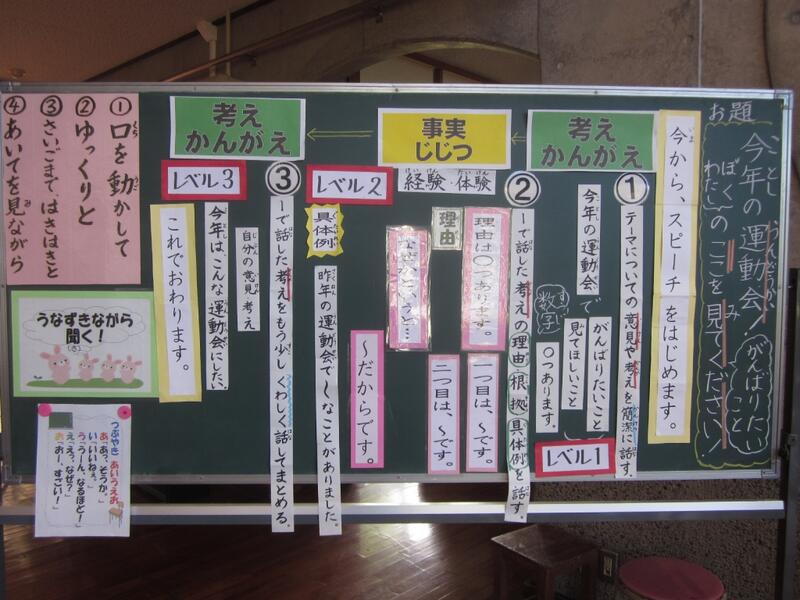 お題
今年の運動会！がんばりたいこと
ぼく
わたしのここを見てください！
今から、スピーチをはじめます。
考え
かんがえ
①
テーマについての意見や考えを簡潔に話す。
レベル1
今年の運動会で
がんばりたいこと
見てほしいこと
数字
〇つあります。
事実
じじつ
経験・体験
②
1で話した考えの理由・根拠・具体例を話す。
理由
理由は〇つあります。
一つ目は、〜です。
二つ目は、〜です。
なぜかというと…
〜だからです。
レベル2
具体例
昨年の運動会で〜なことがありました。
考え
かんがえ
③
1で話した考えをもう少しくわしく話してまとめる。
レベル3
自分の意見 考え
今年は、こんな運動会にしたい。
これでおわります。
①口を動かして
②ゆっくりと
③さいごまで、はきはきと
④あいてを見ながら
うなずきながら
聞く！
つぶやき あいうえお
あ「あぁ、そうか。」
い「いいねぇ。」
う「うーん、なるほど！」
え「えっ、なぜ？」
お「おー、すごい！」